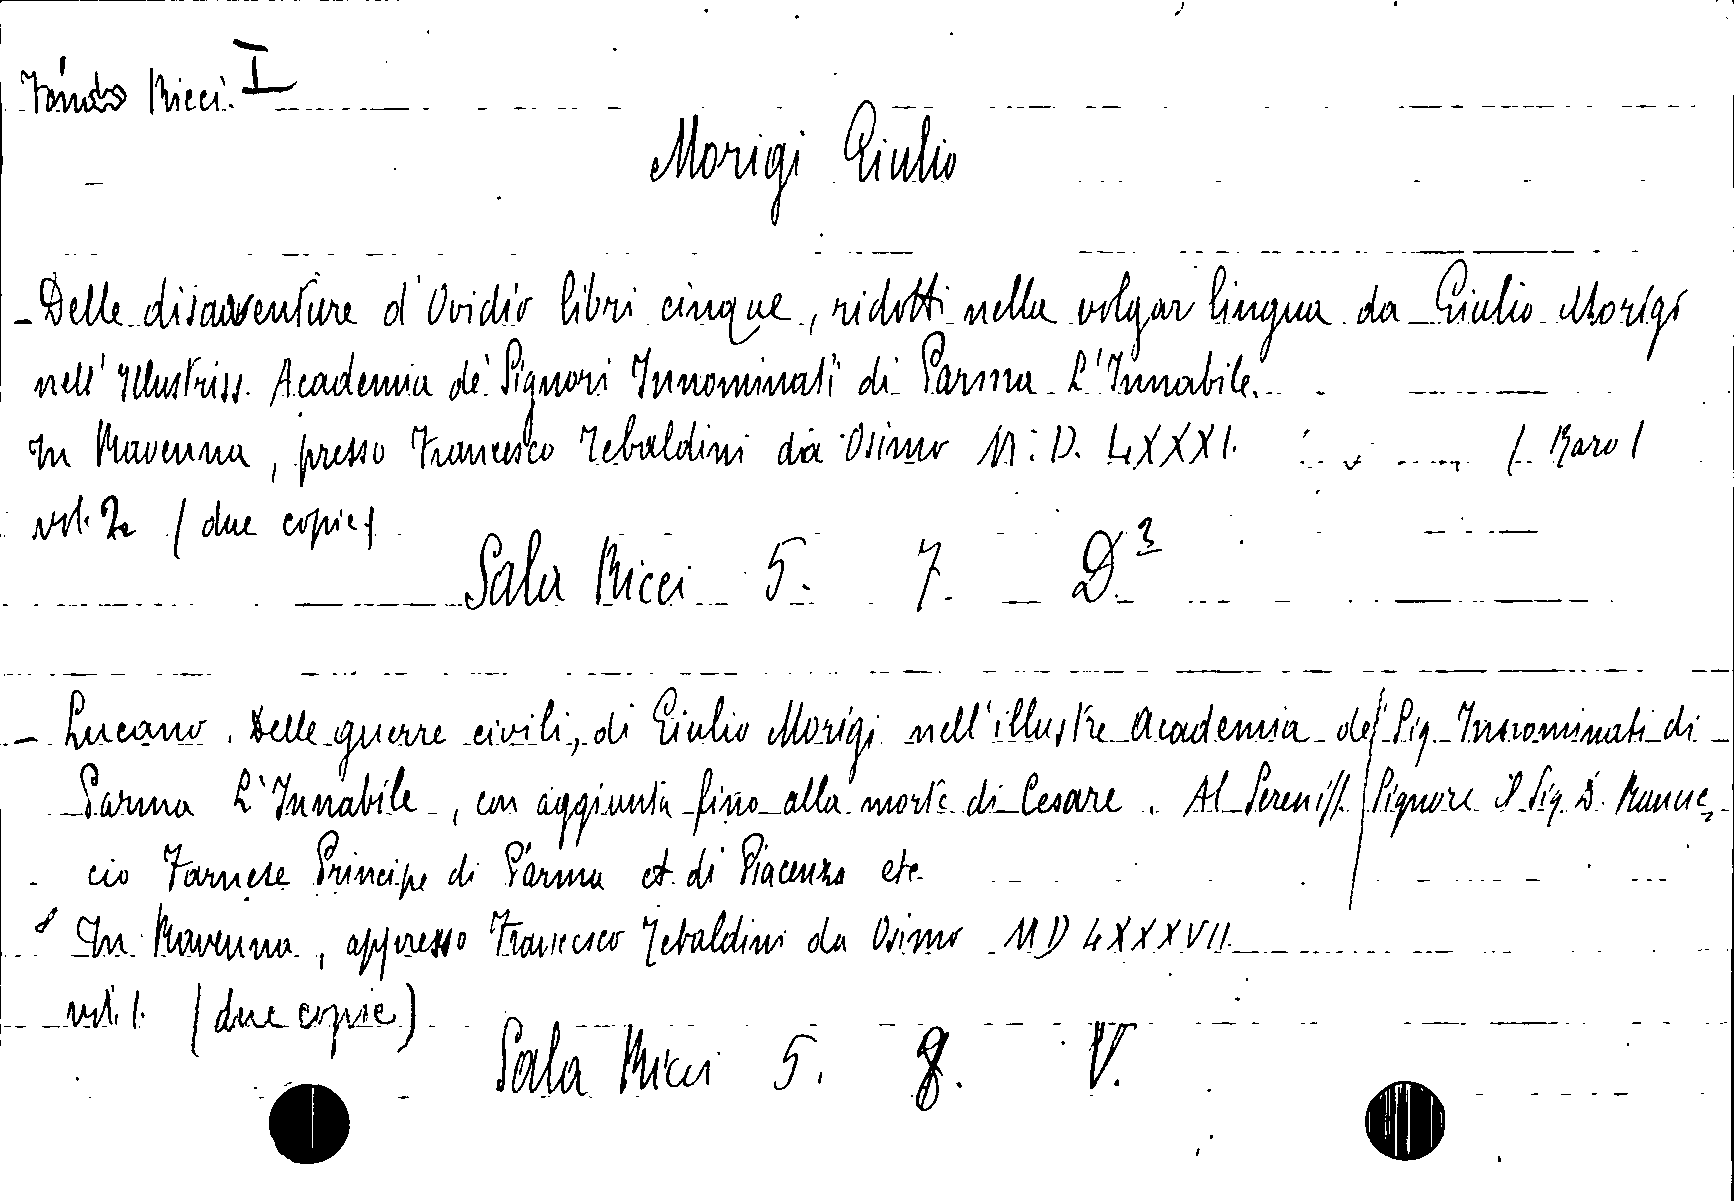 Fondo Ricci. I
Morigi Giulio
- Delle disavventure d'Ovidio libri cinque, ridotti nella volgar lingua da Giulio Morigi
nell'Illustriss. Academia de' Signori Innominati di Parma L'Innabile.
In Ravenna, presso Francesco Tebaldini da Osimo M. D. LXXXI. (Raro)
vol. 2 (due copie)
Sala Ricci 5. 7. D.3
- Lucano. Delle guerre civili, di Giulio Morigi nell'illustre Academia de' Sig. Innominati di
Parma L'Innabile, con aggiunta fino alla morte di Cesare. Al Sereniss. Signore il Sig. D. Rannc,
cio Farnese Principe di Parma et di Piacenza etc
In Ravenna, appresso Francesco Tebaldini da Osimo MD LXXXVII
vol. 1. (due copie)
Sala Ricci 5. 8. V.